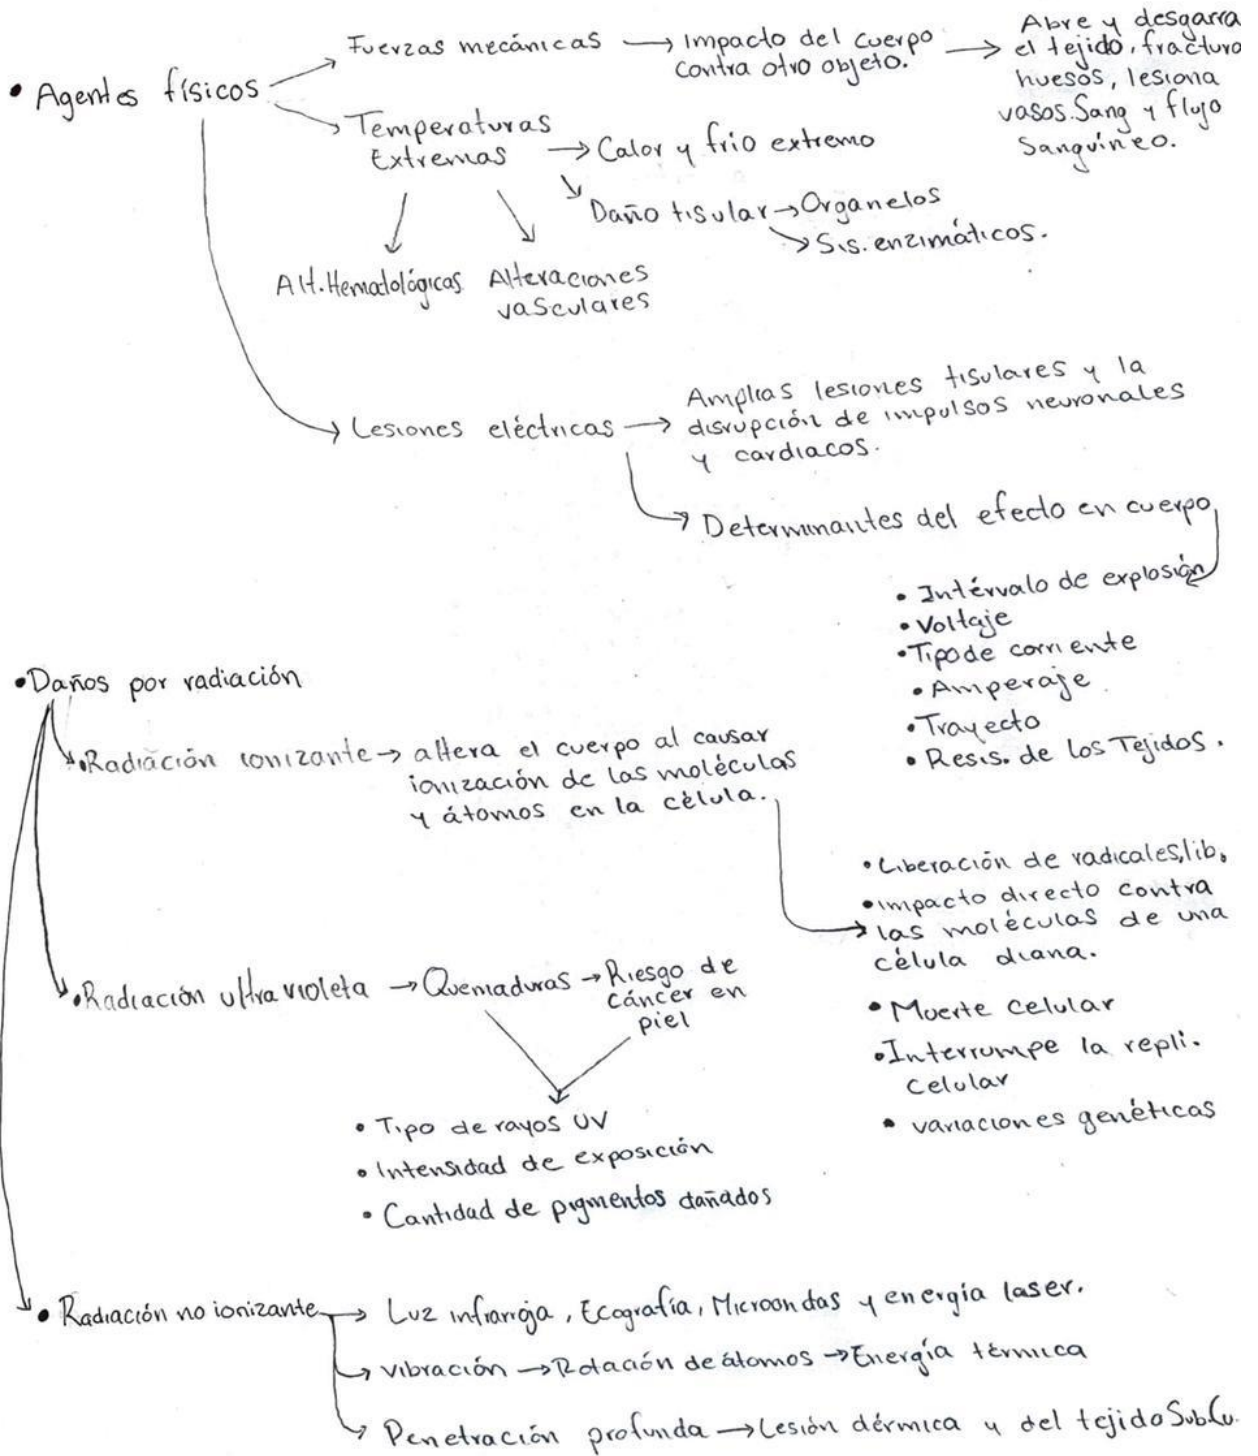 • Agentes físicos
Fuerzas mecánicas → Impacto del cuerpo
contra otro objeto.
→ Abre y desgarra
el tejido, fractura
huesos, lesiona
vasos.Sang y flujo
Sanguíneo.
Temperaturas
Extremas → Calor y frio extremo
Daño tisular → Organelos
Sis. enzimáticos.
Alt. Hematológicas
Alteraciones
vasculares
Lesiones eléctricas → Amplias lesiones tisulares y la
disrupción de impulsos neuronales
y cardiacos.
Determinantes del efecto en cuerpo
• Intérvalo de explosión
• Voltaje
• Tipo de corriente
• Amperaje
• Trayecto
• Resis. de los Tejidos.
• Daños por radiación
• Radiación ionizante → altera el cuerpo al causar
ionización de las moléculas
y átomos en la célula.
• Liberación de radicales, lib.
• impacto directo contra
las moléculas de una
célula diana.
• Muerte celular
• Interrumpe la repli.
celular
• variaciones genéticas
• Radiación ultravioleta → Quemaduras → Riesgo de
cáncer en
piel
• Tipo de rayos UV
• Intensidad de exposición
• Cantidad de pigmentos dañados
• Radiación no ionizante → Luz infarroja, Ecografía, Microondas y energía laser.
→ vibración → Rotación de átomos → Energía térmica
→ Penetración profunda → Lesión dérmica y del tejido Sub.Cu.